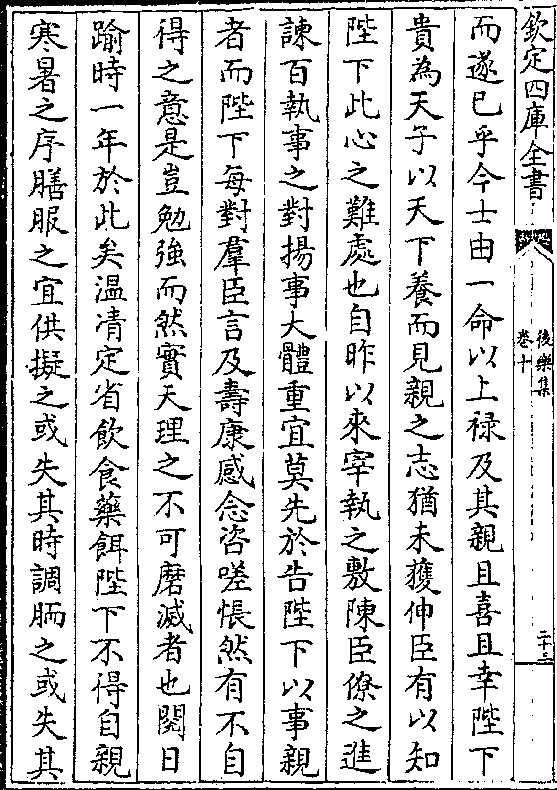 欽定四庫全書
後樂集
卷十
二十三
而遂已乎今士由一命以上禄及其親且喜且幸陛下
貴為天子以天下養而見親之志猶未獲伸臣有以知
陛下此心之難處也自昨以來宰執之敷陳臣僚之進
諫百執事之對揚事大體重宜莫先於告陛下以事親
者而陛下每對羣臣言及壽康感念咨嗟悵然有不自
得之意是豈勉強而然實天理之不可磨滅者也閱日
踰時一年於此矣温凊定省飲食藥餌陛下不得自親
寒暑之序膳服之宜供擬之或失其時調胹之或失其